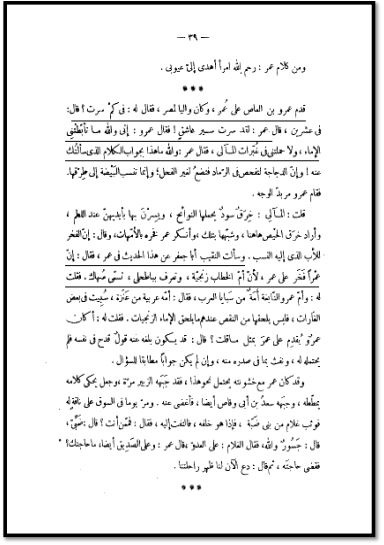 — ٣٩ —
ومن كلام عمر : رحم الله امرأ أهدى إلىّ عيوبى .
***
قدم عمرو بن العاص على عُمر ، وكان واليا لمصر ، فقال له : فى كم سرت ؟ قال:
فى عشرين ، قال عمر : لقد سرت سير عاشق ! فقال عمرو : إنى والله ما تأبّطتْنى
الإماء، ولا حملتنى فى غُبّرات المآلى ، فقال عمر : والله ماهذا بجواب الكلام الذى سألتك
عنه ! وإنّ الدجاجة لتفحص فى الرّماد فتضعُ لغير الفحل؛ وإنما تنسب البَيْضة إلى طِرقها.
فقام عمرو مربدّ الوجه .
قلت : المآلى : خِرَقٌ سودٌ يحملها النوائح ، ويسِرْنَ بها بأيديهنّ عند اللطم ،
وأراد خرَق الحيْض هاهنا ، وشبّهها بتلك ، وأنكر عمر فخره بالأمّهات، وقال : إنّ الفخر
للأب الذى إليه النسب . وسألت النقيب أبا جعفر عن هذا الحديث فى عمر ، فقال : إنّ
عَمْراً فَخَر على عمر ، لأنّ أمّ الخطاب زنجيّة ، وتعرف بباطحلى ، تسمّى صُهاك . فقلت
له : وأمّ عمرو النّابغة أمَة من سَبايا العرب ، فقال : أمَة عربية من عَنَزة ، سُبيت فى بعض
الغارات ، فليس يلحقها من النقص عندهم ما يلحق الإماء الزنجيات . فقلت له : أكان
عمرو يقدم على عمرَ بمثل ما قلت ؟ قال : قد يسكون بلغه عنه قولٌ قدح فى نفسه فلم
يحتمله له ، ونفث بما فى صدره منه ، وإن لم يكن جواباً مطابقا للسؤال .
وقد كان عمر مع خشونته يحتمل نحو هذا ، فقد جَبَهه الزبير مرّة ، وجعل يحكى كلامه
يمططه ، وجبَهه سعدُ بن أبى وقاص أيضا، فأغضى عنه . ومرّ يوما فى السوق على ناقةٍ له
فوثب غلام من بنى ضَبّة ، فإذا هو خلفه ، فالتفت إليه ، فقال : فممّن أنت ؟ قال : ضَبّىّ،
قال : جَسُورٌ والله، فقال الغلام : على العدوّ، قال عمر : وعلى الصّديق أيضا، ما حاجتك؟
فقضى حاجته ، ثم قال : دع الآن لنا ظهر راحلتنا .
***